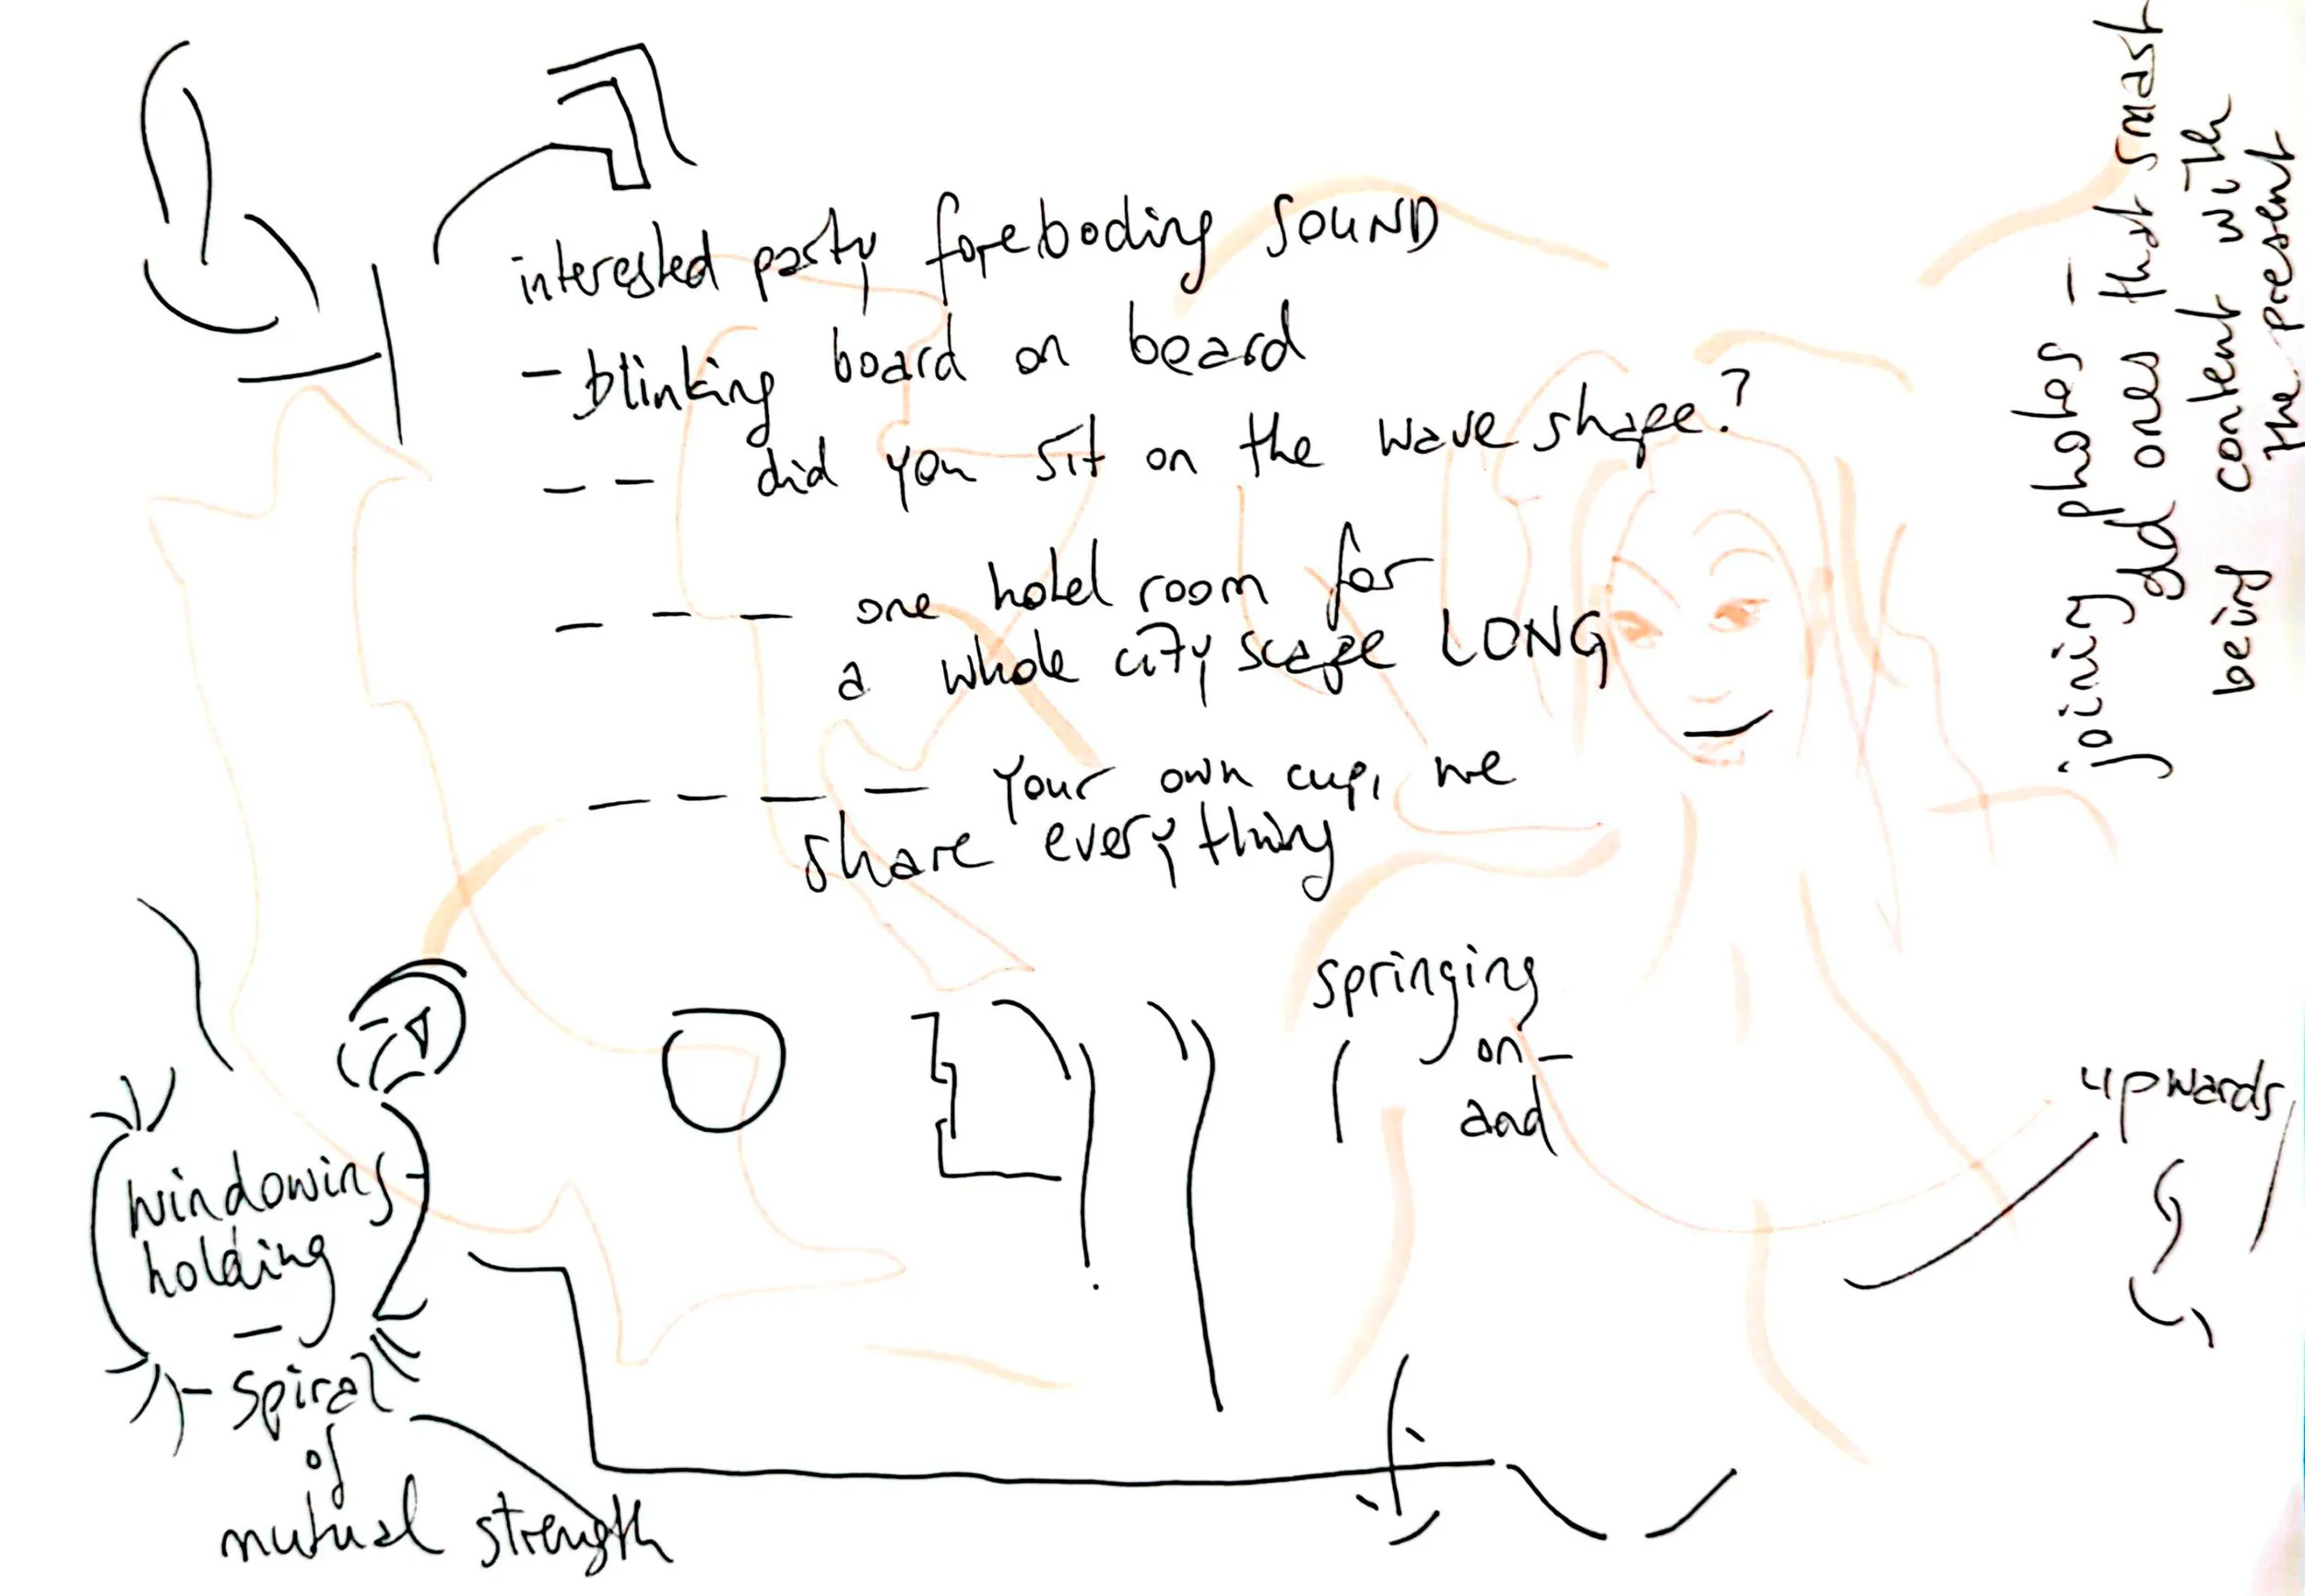 interested party foreboding SOUND
- blinking board on beard
- - did you sit on the wave shape?
- - - one hotel room for
a whole city scape LONG
- - - - your own cup, we
share everything
springing
on -
and
upwards
windowing
holding
-
- spiral
of
mutual strength
joining photos -
glad ones that smash
being content with
the present